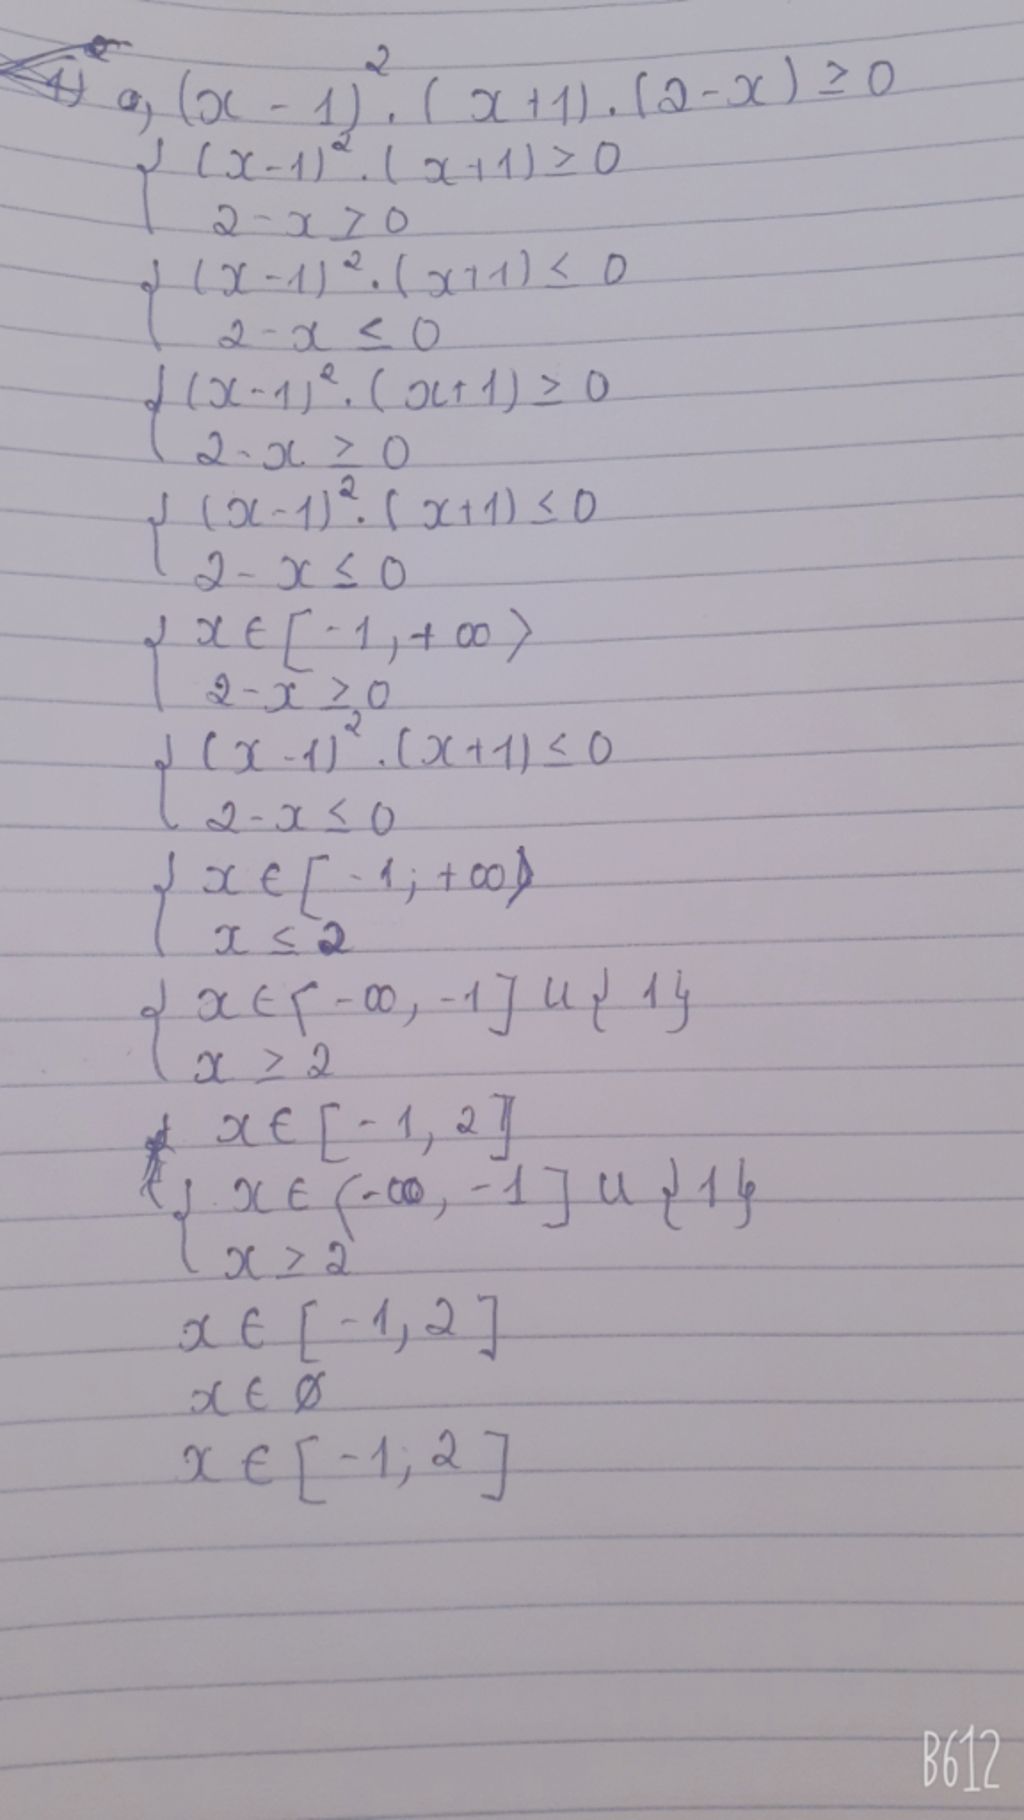 1) a, (x - 1)² . (x+1) . (2-x) ≥ 0
{ (x-1)² . (x+1) ≥ 0
2 - x ≥ 0
{ (x-1)² . (x+1) ≤ 0
2 - x ≤ 0
{ (x-1)² . (x+1) ≥ 0
2 - x ≥ 0
{ (x-1)² . (x+1) ≤ 0
2 - x ≤ 0
{ x ∈ [-1, +∞)
2 - x ≥ 0
{ (x-1)² . (x+1) ≤ 0
2 - x ≤ 0
{ x ∈ [-1; +∞)
x ≤ 2
{ x ∈ [-∞, -1] ∪ {1}
x ≥ 2
x ∈ [-1, 2]
{ x ∈ (-∞, -1] ∪ {1}
x ≥ 2
x ∈ [-1, 2]
x ∈ ∅
x ∈ [-1; 2]
B612